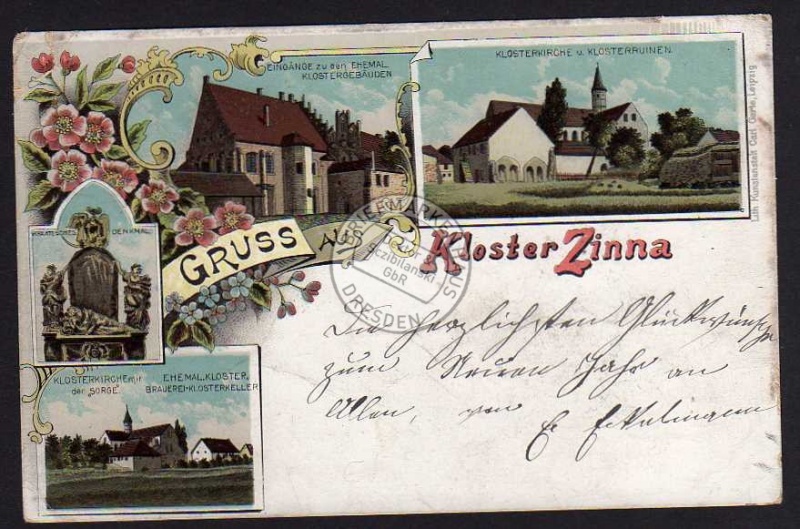 EINGÄNGE zu den EHEMAL.
KLOSTERGEBÄUDEN
KLOSTERKIRCHE u. KLOSTERRUINEN.
Lith. Kunstanstalt Carl Garte, Leipzig
DENKMAL
GRUSS AUS
Kloster Zinna
BRIEFMARKENHAUS
Sczibilanski
GbR
DRESDEN
KLOSTERKIRCHE mit
der „SORGE"
EHEMAL. KLOSTER.
BRAUEREI-KLOSTERKELLER
Die herzlichsten Glückwünsche
zum Neuen Jahr an
Allen, von
E.